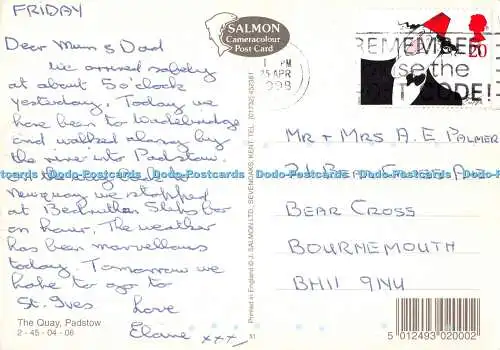 FRIDAY
Dear Mum & Dad
We arrived safely
at about 5 o'clock
yesterday. Today we
have been to Wadebridge
and walked along by
the river into Padstow.
Newquay we stopped
at Bedruthan Steps for
an hour. The weather
has been marvellous
today. Tomorrow we
hope to go to
St. Ives
Love
Elaine xxx
The Quay, Padstow
2 - 45 - 04 - 06
SALMON
Cameracolour
Post Card
Printed in England © J. SALMON LTD., SEVENOAKS, KENT. TEL. (01732) 452381
51
PM
25 APR
1998
REMEMBER
use the
POST CODE!
20
MR + MRS A. E PALMER
BEAR CROSS
BOURNEMOUTH
BH11 9NU
Dodo-Postcards Dodo-Postcards Dodo-Postcards Dodo-Postcards
5 012493 020002